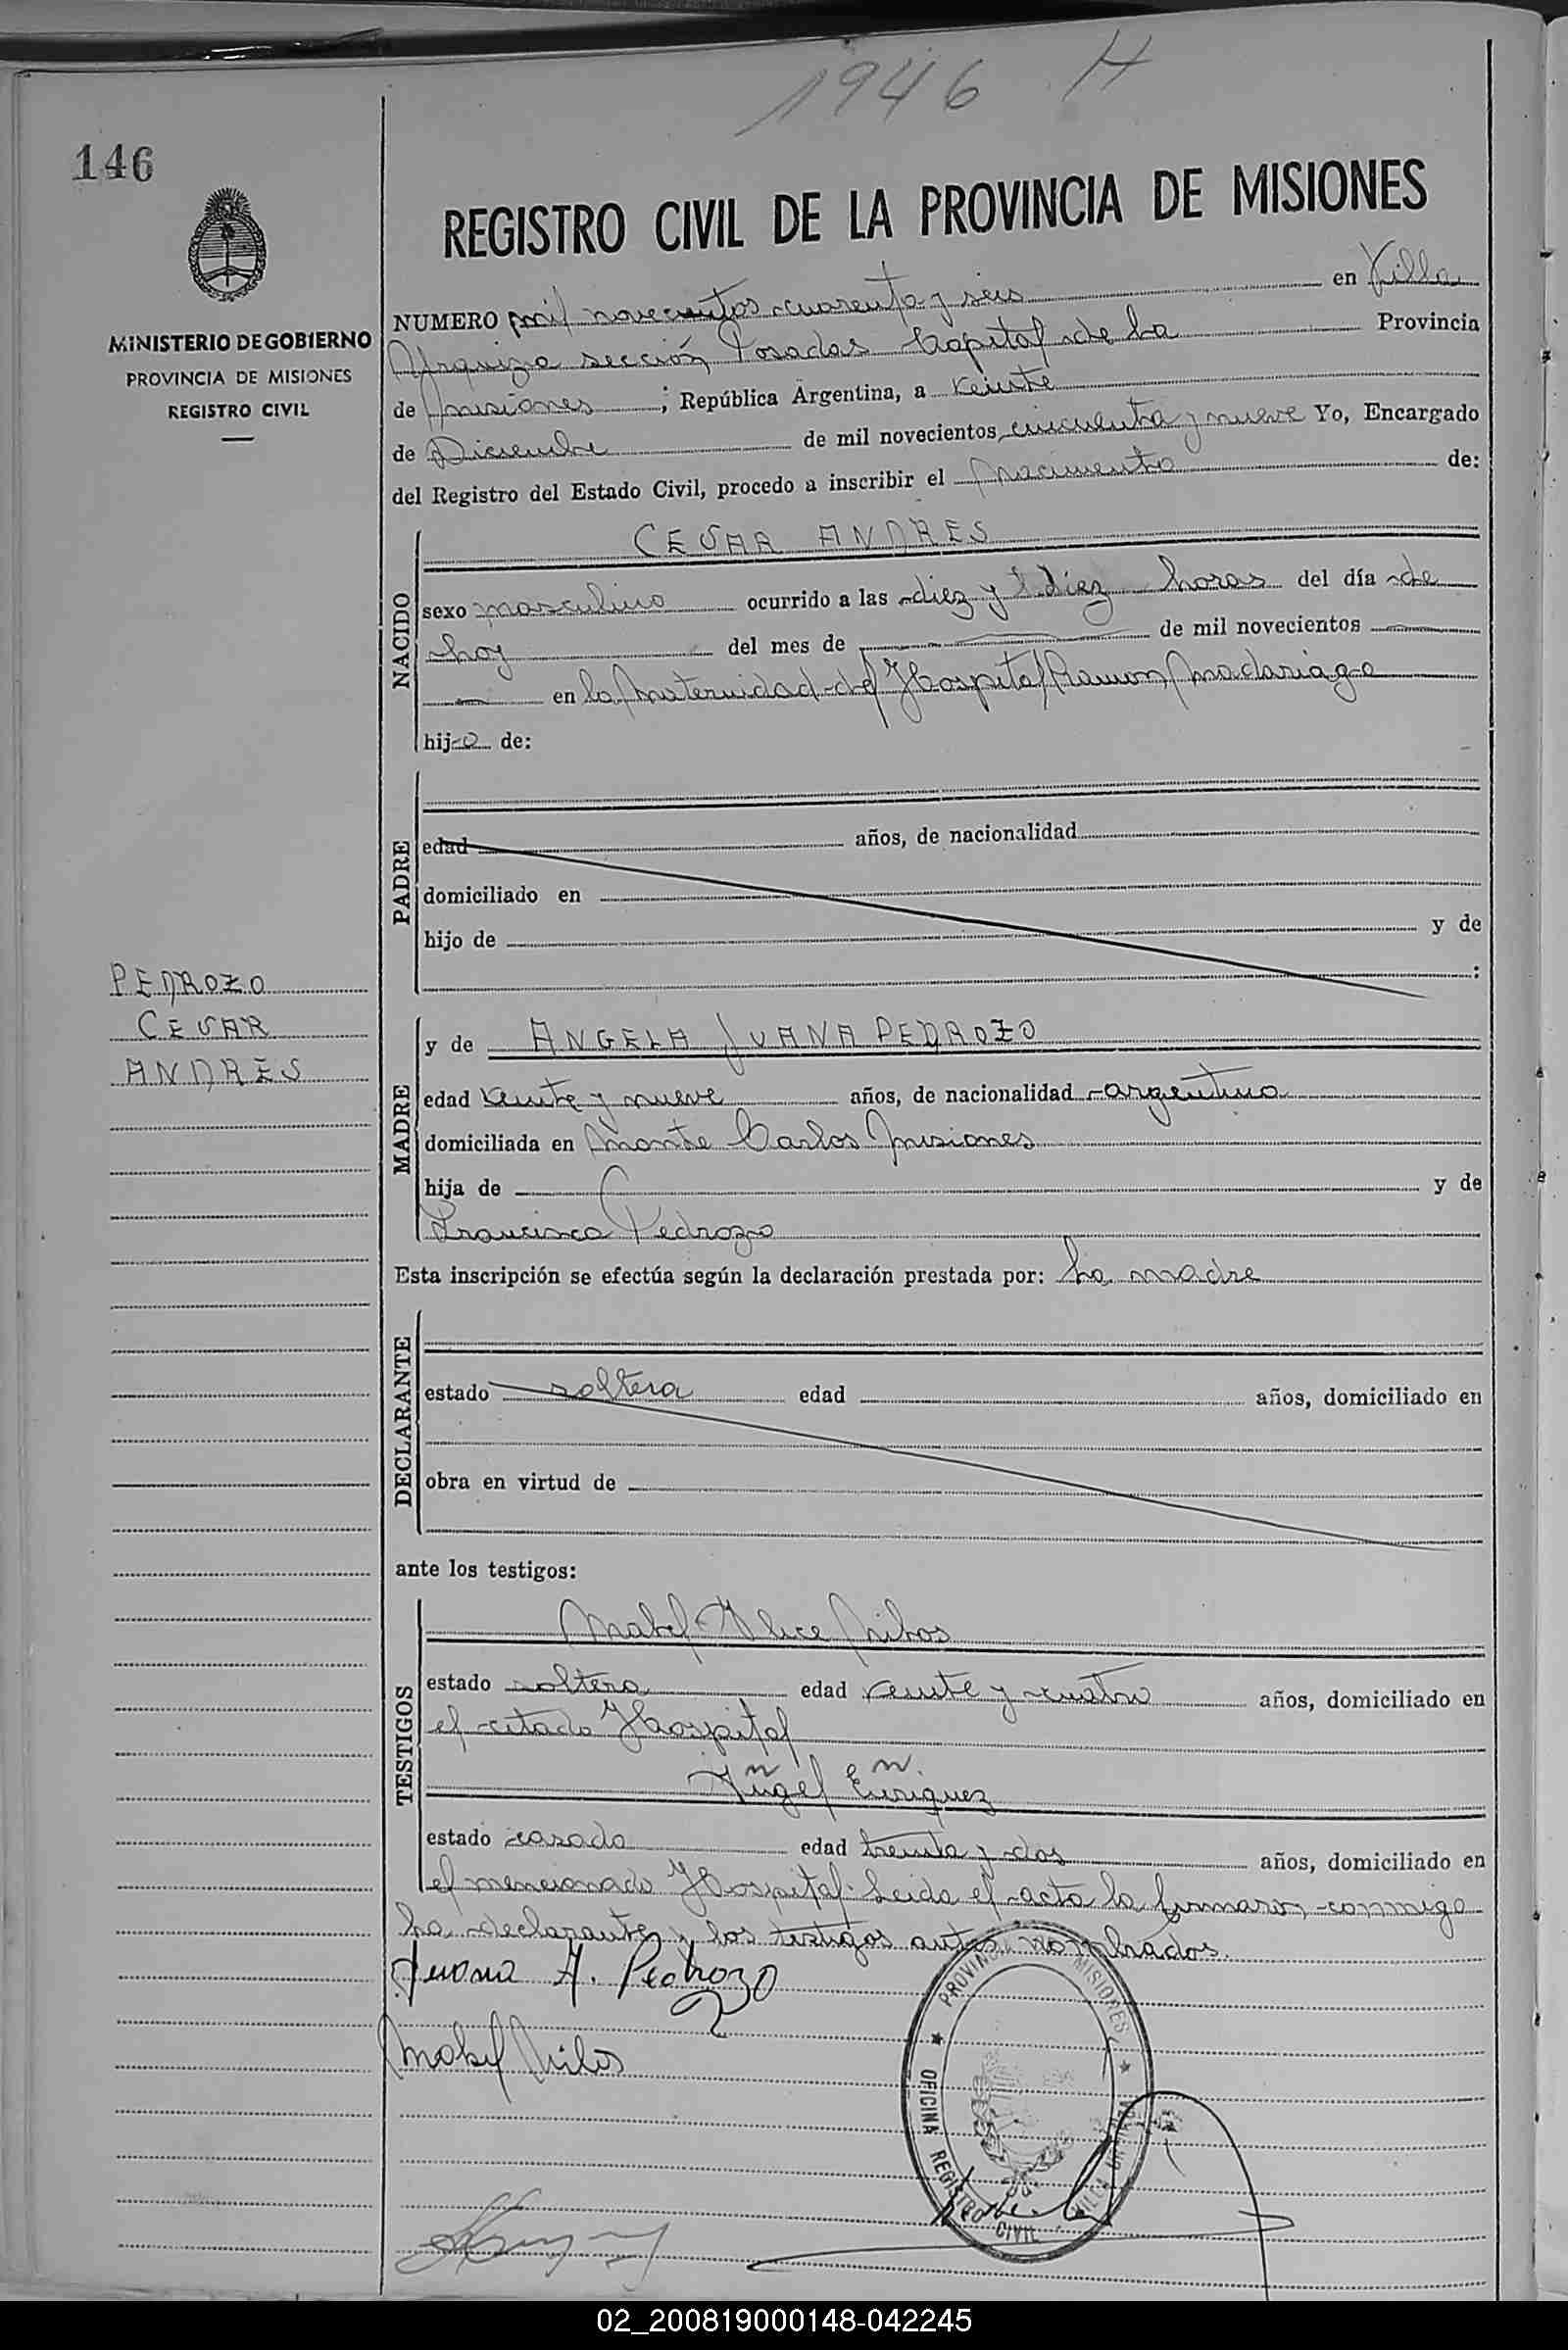 1946 H
146
REGISTRO CIVIL DE LA PROVINCIA DE MISIONES
MINISTERIO DE GOBIERNO
PROVINCIA DE MISIONES
REGISTRO CIVIL
NUMERO mil novecientos cuarenta y seis en Villa
Urquiza sección Posadas Capital de la Provincia
de Misiones ; República Argentina, a veinte
de Diciembre de mil novecientos cincuenta y nueve Yo, Encargado
del Registro del Estado Civil, procedo a inscribir el nacimiento de:
NACIDO
CESAR ANDRES
sexo masculino ocurrido a las diez y diez horas del día de
hoy del mes de de mil novecientos
en la Maternidad del Hospital Ramon Madariaga
hijo de:
PADRE
edad años, de nacionalidad
domiciliado en
hijo de y de
:
PEDROZO
CESAR
ANDRES
MADRE
y de ANGELA JUANA PEDROZO
edad veinte y nueve años, de nacionalidad argentina
domiciliada en Monte Carlos Misiones
hija de y de
Francisca Pedrozo
Esta inscripción se efectúa según la declaración prestada por: La madre
DECLARANTE
estado soltera edad años, domiciliado en
obra en virtud de
ante los testigos:
TESTIGOS
Mabel Alice
estado soltera edad veinte y cuatro años, domiciliado en
el citado Hospital
Angel Enriquez
estado casado edad treinta y dos años, domiciliado en
el mencionado Hospital. Leida el acta la firmaron conmigo
La declarante y los testigos antes nombrados.
Juana A. Pedrozo
Mabel
PROVINCIA MISIONES
OFICINA REGISTRO CIVIL
02_200819000148-042245